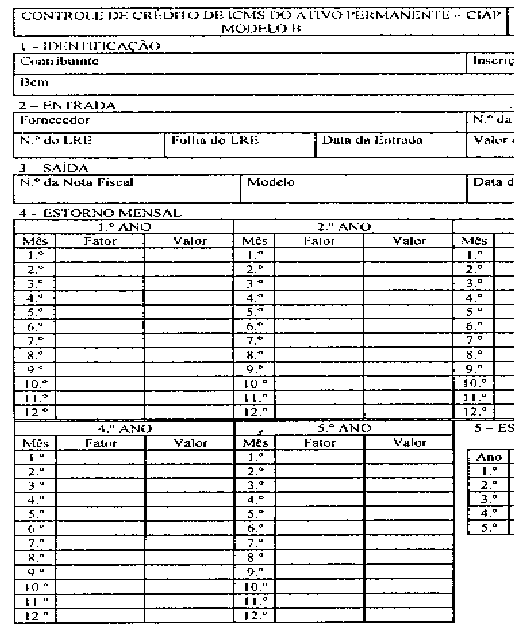 CONTROLE DE CRÉDITO DE ICMS DO ATIVO PERMANENTE – CIAP
MODELO B
1 – IDENTIFICAÇÃO
Contribuinte Inscriç
Bem
2 – ENTRADA
Fornecedor N.º da
N.º do LRE Folha do LRE Data da Entrada Valor
3 SAÍDA
N.º da Nota Fiscal Modelo Data d
4 – ESTORNO MENSAL
1.º ANO 2.º ANO
Mês Fator Valor Mês Fator Valor Mês
1.º 1.º 1.º
2.º 2.º 2.º
3.º 3.º 3.º
4.º 4.º 4.º
5.º 5.º 5.º
6.º 6.º 6.º
7.º 7.º 7.º
8.º 8.º 8.º
9.º 9.º 9.º
10.º 10.º 10.º
11.º 11.º 11.º
12.º 12.º 12.º
4.º ANO 5.º ANO 5 – ES
Mês Fator Valor Mês Fator Valor
1.º 1.º Ano
2.º 2.º 1.º
3.º 3.º 2.º
4.º 4.º 3.º
5.º 5.º 4.º
6.º 6.º 5.º
7.º 7.º
8.º 8.º
9.º 9.º
10.º 10.º
11.º 11.º
12.º 12.º